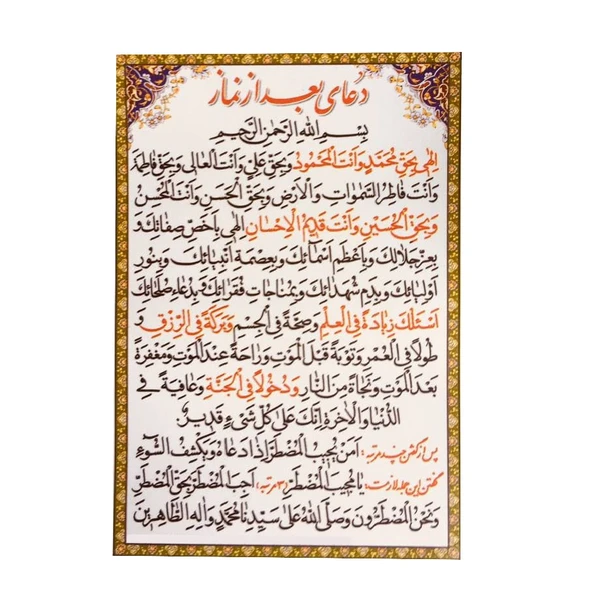 دعای بعد از نماز
بِسْمِ اللهِ الرَّحْمٰنِ الرَّحیمِ
اِلٰهی بِحَقِّ مُحَمَّدٍ وَاَنْتَ الْمَحْمُودُ وَبِحَقِّ عَلِیٍّ وَاَنْتَ الْعالی وَبِحَقِّ فاطِمَةَ
وَاَنْتَ فاطِرُ السَّمٰوٰاتِ وَالْاَرْضِ وَبِحَقِّ الْحَسَنِ وَاَنْتَ الْمُحْسِنُ
وَبِحَقِّ الْحُسَیْنِ وَاَنْتَ قَدیمُ الْاِحْسٰانِ اِلٰهی بِاَخَصِّ صِفٰاتِكَ وَ
بِعِزِّ جَلٰالِكَ وَبِاَعْظَمِ اَسْمٰائِكَ وَبِعِصْمَةِ اَنْبِیٰائِكَ وَبِنُورِ
اَوْلِیٰائِكَ وَبِدَمِ شُهَدٰائِكَ وَبِمُنٰاجٰاتِ فُقَرٰائِكَ وَبِدُعٰاءِ صُلَحٰائِكَ
اَسْئَلُكَ زِیٰادَةً فِی الْعِلْمِ وَصِحَّةً فِی الْجِسْمِ وَبَرَكَةً فِی الرِّزْقِ وَ
طُولاً فِی الْعُمْرِ وَتَوْبَةً قَبْلَ الْمَوْتِ وَرٰاحَةً عِنْدَ الْمَوْتِ وَمَغْفِرَةً
بَعْدَ الْمَوْتِ وَنَجٰاةً مِنَ النّٰارِ وَدُخُولاً فِی الْجَنَّةِ وَعٰافِیَةً فِی
الدُّنْیٰا وَالْاٰخِرَةِ اِنَّكَ عَلیٰ كُلِّ شَیْءٍ قَدیرٌ.
پس از گفتن چند مرتبه: اَمَّنْ یُجیبُ الْمُضْطَرَّ اِذٰا دَعٰاهُ وَیَكْشِفُ السُّوٓءَ
گفتن این جمله لازمست: یٰا مُجیبَ الْمُضْطَرِّ (۳ مرتبه) اَجِبِ الْمُضْطَرَّ بِحَقِّ الْمُضْطَرِّ
وَنَحْنُ الْمُضْطَرُّونَ وَصَلَّی اللهُ عَلیٰ سَیِّدِنٰا مُحَمَّدٍ وَاٰلِهِ الطّٰاهِرینَ